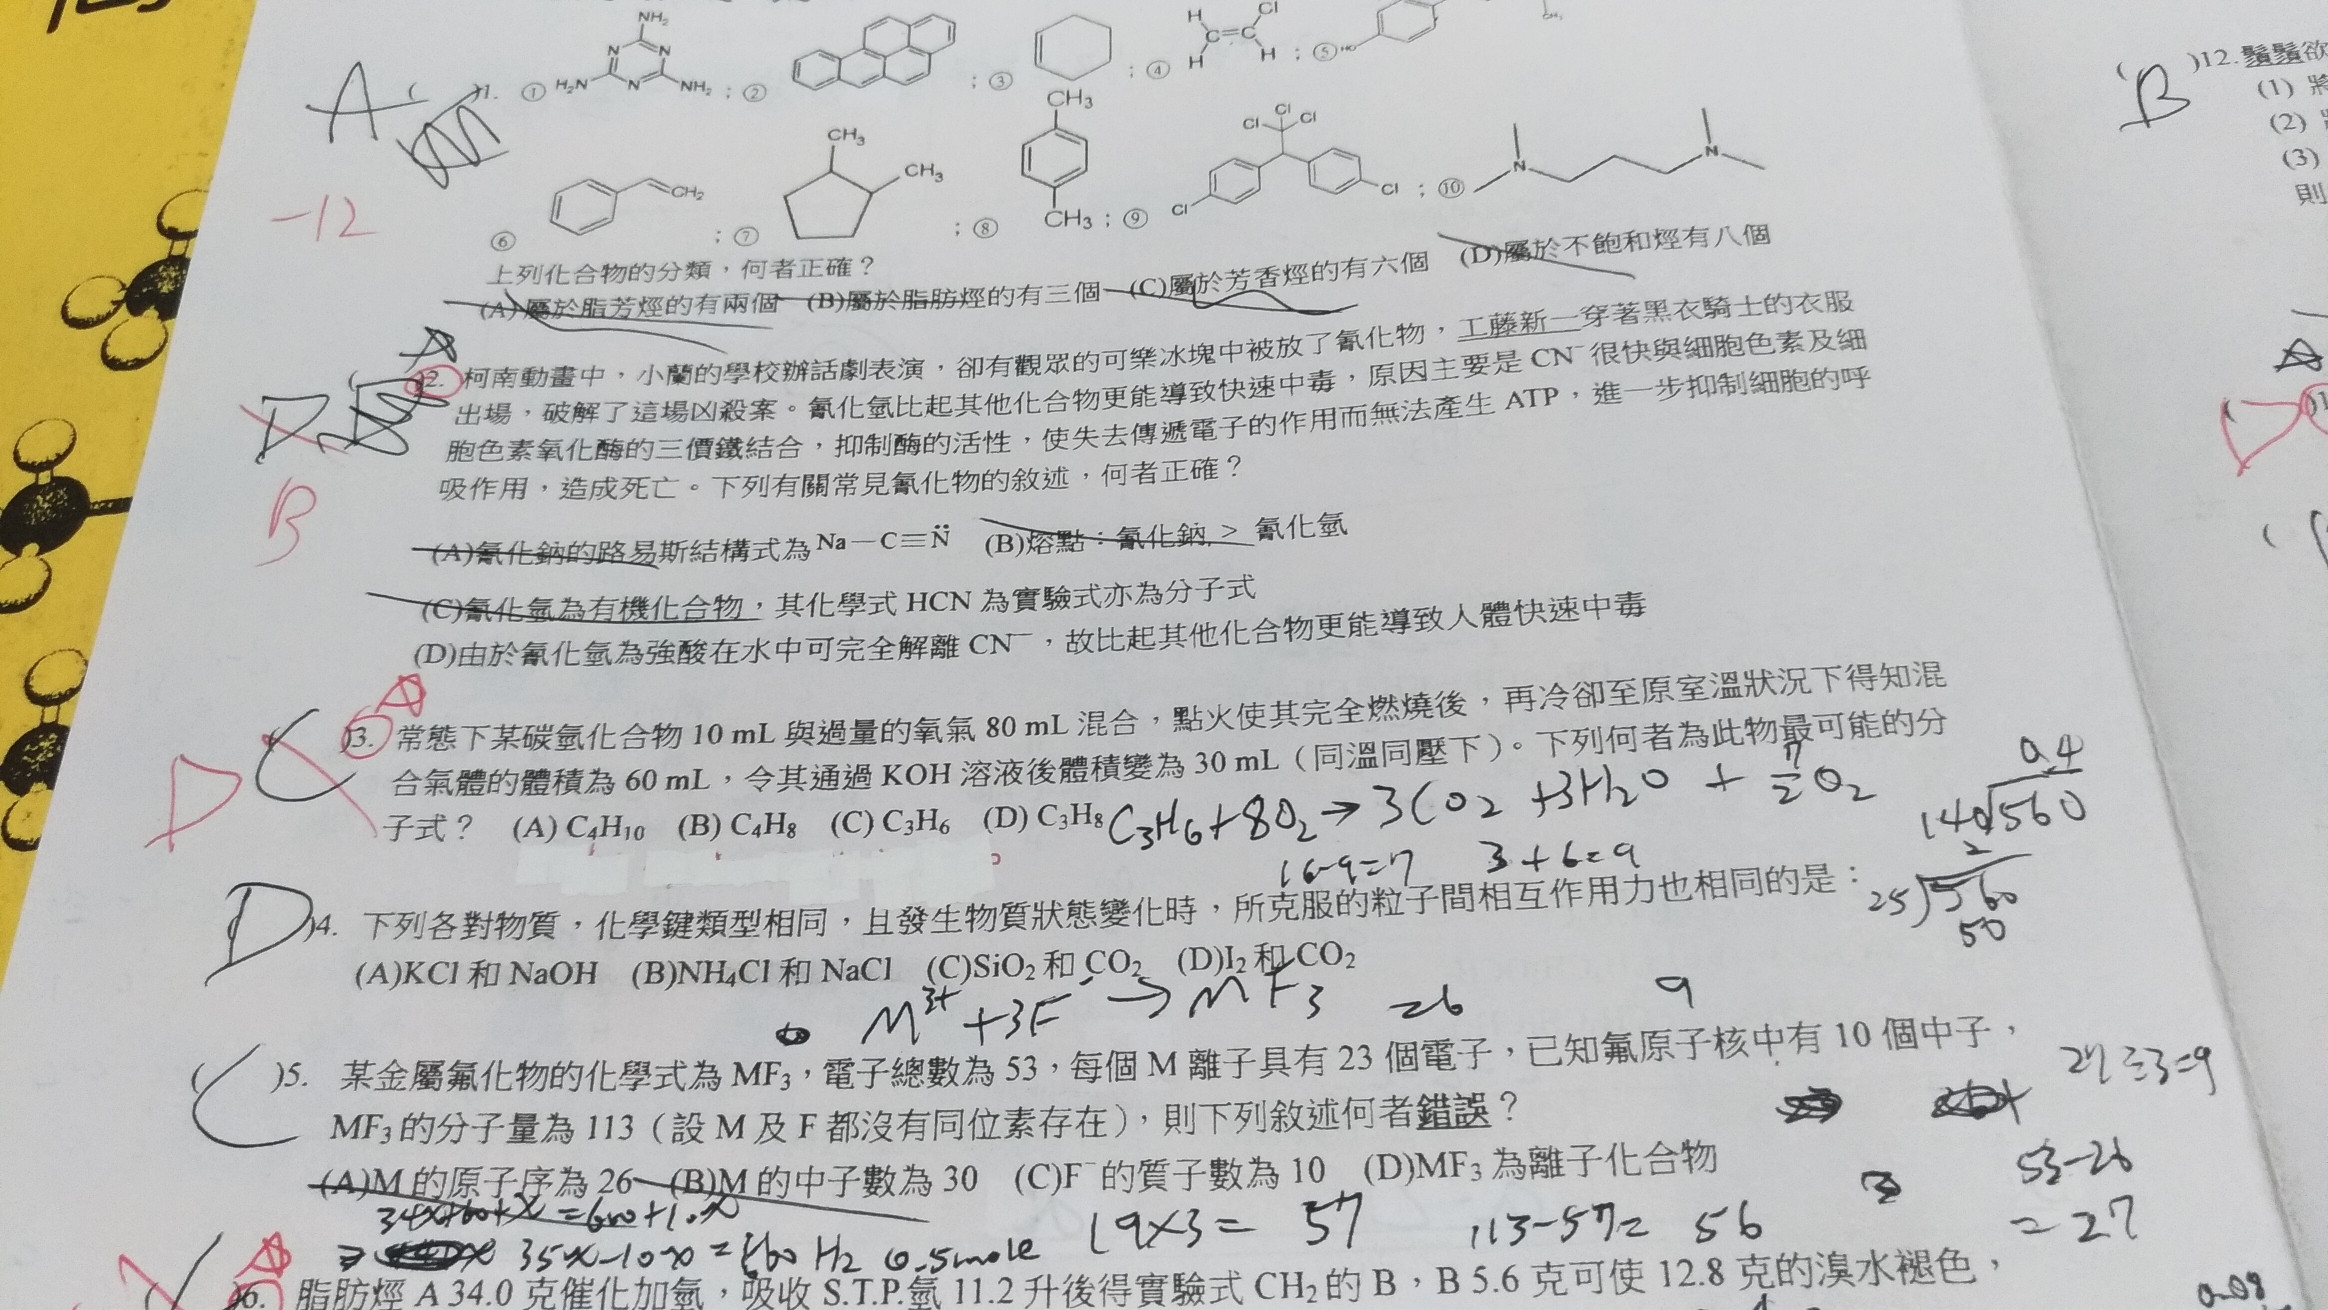 A ( )1. ① NH₂ N N H₂N N NH₂ ; ② ; ③ ; ④ H Cl C=C H H ; ⑤ HO
-12
⑥ CH₂ ; ⑦ CH₃ CH₃ ; ⑧ CH₃ CH₃ ; ⑨ Cl Cl Cl Cl Cl ; ⑩ N N
上列化合物的分類，何者正確？
(A)屬於脂芳烴的有兩個 (B)屬於脂肪烴的有三個 (C)屬於芳香烴的有六個 (D)屬於不飽和烴有八個
D ( )2. 柯南動畫中，小蘭的學校辦話劇表演，卻有觀眾的可樂冰塊中被放了氰化物，工藤新一穿著黑衣騎士的衣服
出場，破解了這場凶殺案。氰化氫比起其他化合物更能導致快速中毒，原因主要是 CN⁻ 很快與細胞色素及細
胞色素氧化酶的三價鐵結合，抑制酶的活性，使失去傳遞電子的作用而無法產生 ATP，進一步抑制細胞的呼
吸作用，造成死亡。下列有關常見氰化物的敘述，何者正確？
B
(A)氰化鈉的路易斯結構式為 Na－C≡N̈ (B)熔點：氰化鈉 > 氰化氫
(C)氰化氫為有機化合物，其化學式 HCN 為實驗式亦為分子式
(D)由於氰化氫為強酸在水中可完全解離 CN⁻，故比起其他化合物更能導致人體快速中毒
D C ( )3. 常態下某碳氫化合物 10 mL 與過量的氧氣 80 mL 混合，點火使其完全燃燒後，再冷卻至原室溫狀況下得知混
合氣體的體積為 60 mL，令其通過 KOH 溶液後體積變為 30 mL（同溫同壓下）。下列何者為此物最可能的分
子式？ (A) C₄H₁₀ (B) C₄H₈ (C) C₃H₆ (D) C₃H₈
C₃H₆+8O₂→3CO₂+3H₂O+7/2O₂
16-9=7 3+6=9
0.4
140)560
2
25)560
50
D ( )4. 下列各對物質，化學鍵類型相同，且發生物質狀態變化時，所克服的粒子間相互作用力也相同的是：
(A)KCl 和 NaOH (B)NH₄Cl 和 NaCl (C)SiO₂ 和 CO₂ (D)I₂ 和 CO₂
M³⁺+3F⁻→MF₃ =26 9
C ( )5. 某金屬氟化物的化學式為 MF₃，電子總數為 53，每個 M 離子具有 23 個電子，已知氟原子核中有 10 個中子，
27÷3=9
MF₃ 的分子量為 113（設 M 及 F 都沒有同位素存在），則下列敘述何者錯誤？
(A)M 的原子序為 26 (B)M 的中子數為 30 (C)F⁻ 的質子數為 10 (D)MF₃ 為離子化合物
53-26
=27
19×3= 57 113-57= 56
H₂ 0.5mole
)6. 脂肪烴 A 34.0 克催化加氫，吸收 S.T.P.氫 11.2 升後得實驗式 CH₂ 的 B，B 5.6 克可使 12.8 克的溴水褪色，
B ( )12. 鬚鬚欲
(1) 將
(2)
(3)
則